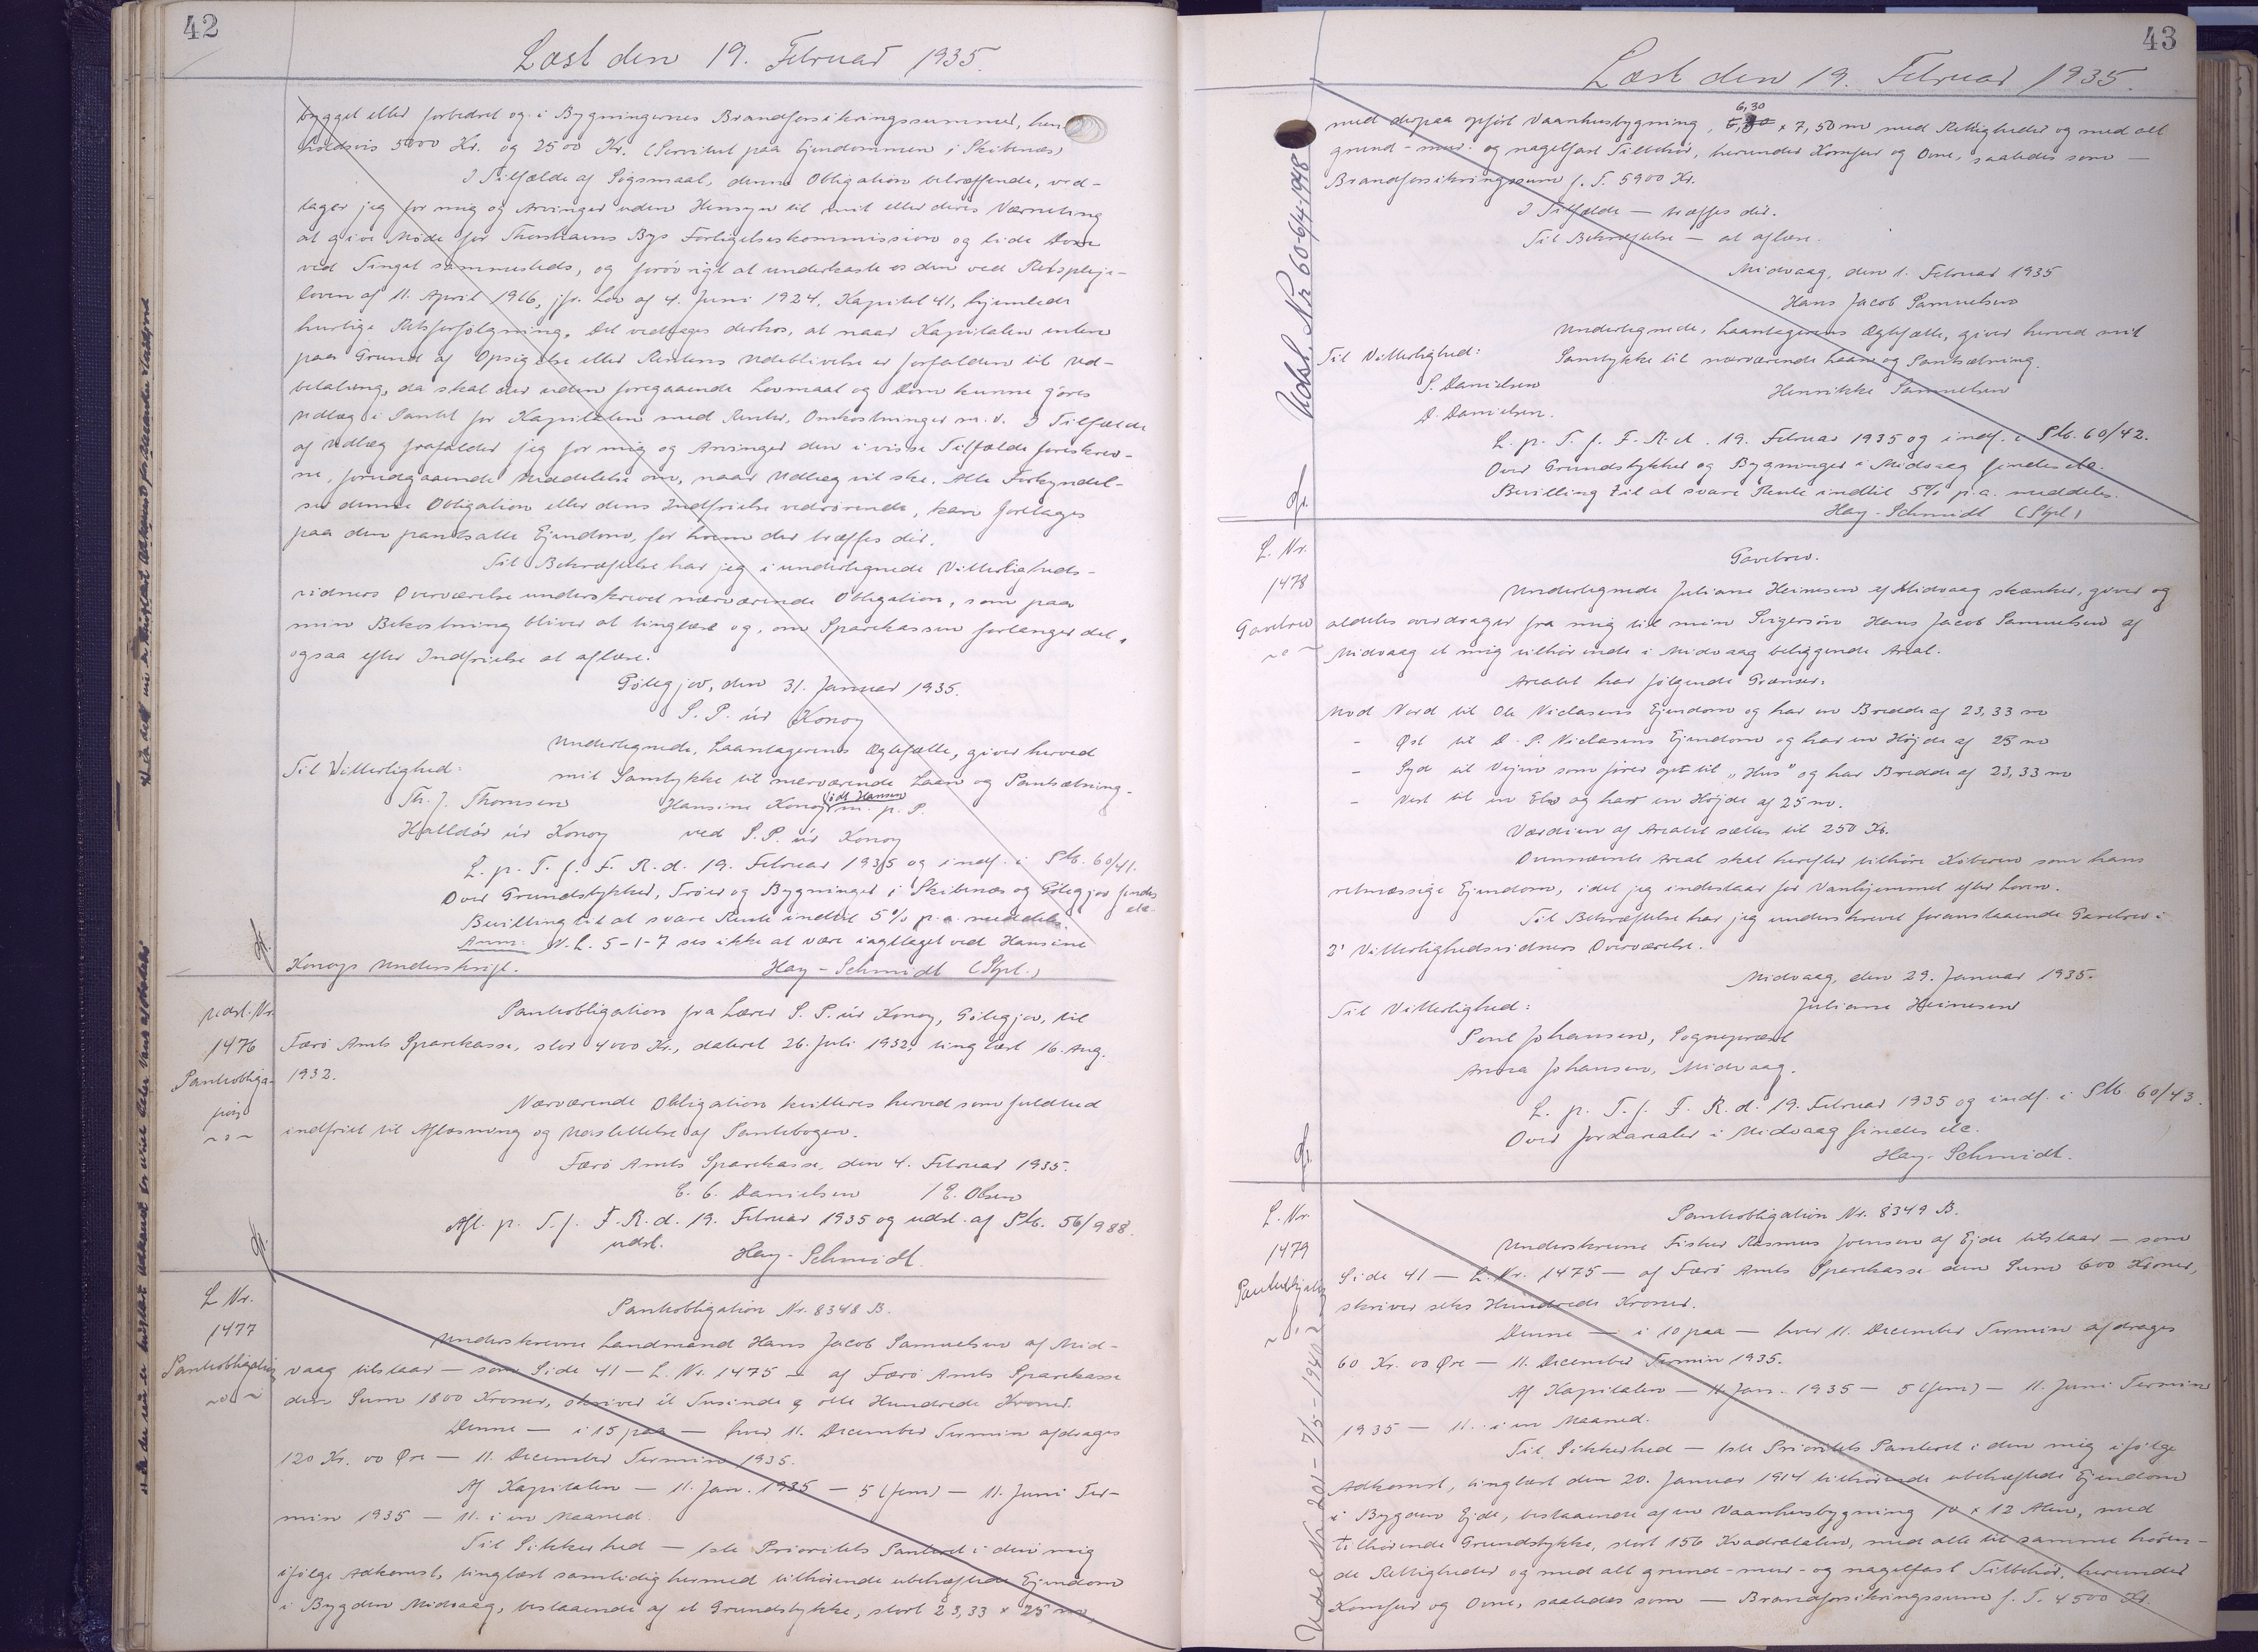 42
Læst den 19. Februar 1935.
bygget eller forbedret og i Bygningernes Brandforsikringssummer, hen-
holdsvis 5000 Kr. og 2500 Kr. (Servitut paa Ejendommen i Skibenæs)
I Tilfælde af Søgsmaal, denne Obligation betræffende, ved-
tager jeg for mig og Arvinger uden Hensyn til mit eller deres Værneting
at give Møde for Thorshavns Bys Forligelseskommission og lide Dom
ved Tinget sammesteds, og forøvrigt at underkaste os den ved Retspleje-
loven af 11. April 1916, jfr. Lov af 4. Juni 1924, Kapitel 41, hjemlede
hurtige Retsforfølgning. Det vedtages derhos, at naar Kapitalen enten
paa Grund af Opsigelse eller Rentens Udeblivelse er forfalden til Ud-
betaling, da skal der uden foregaaende Lovmaal og Dom kunne gøres
Udlæg i Pantet for Kapitalen med Renter, Omkostninger m.v. I Tilfælde
af Udlæg frafalder jeg for mig og Arvinger den i visse Tilfælde foreskrev-
ne, forudgaaende Meddelelse om, naar Udlæg vil ske. Alle Forkyndel-
ser denne Obligation eller dens Indfrielse vedrørende, kan foretages
paa den pantsatte Ejendom, for hvem der træffes dér.
Til Bekræftelse har jeg i undertegnede Vitterligheds-
vidners Overværelse underskrevet nærværende Obligation, som paa
min Bekostning bliver at tinglæse og, om Sparekassen forlanger det,
ogsaa efter Indfrielse at aflæse.
Gøtegjov, den 31. Januar 1935.
S. P. úr Konoy
Undertegnede, Laantagerens Ægtefælle, giver herved
Til Vitterlighed: mit Samtykke til nærværende Laan og Pantsætning.
Th. J. Thomsen Hansine Konoy født Hansen m. p. P.
Halldór úr Konoy ved S. P. úr Konoy
L. p. T. f. F. R. d. 19. Februar 1935 og indf. i Ptb. 60/41.
Over Grundstykker, Trøer og Bygninger i Skibenæs og Gøtegjov findes
etc.
Bevilling til at svare Rente indtil 5% p.a. meddeles.
Anm: N. L. 5-1-7 ses ikke at være iagttaget ved Hansine
Konoys Underskrift. Hay-Schmidt (Stpl.)
Udsl. Nr.
1476
Pantobliga-
tion
Pantobligation fra Lærer S. P. úr Konoy, Gøtegjov, til
Færø Amts Sparekasse, stor 4000 Kr., dateret 26. Juli 1932, tinglæst 16. Aug.
1932.
Nærværende Obligation kvitteres herved som fuldtud
indfriet til Aflæsning og Udslettelse af Pantebogen.
Færø Amts Sparekasse, den 4. Februar 1935.
C. C. Danielsen / E. Olsen
Afl. p. T. f. F. R. d. 19. Februar 1935 og udsl. af Ptb. 56/988.
udsl.
Hay-Schmidt.
L Nr.
1477
Pantobligation
Pantobligation Nr. 8348 B.
Underskrevne Landmand Hans Jacob Samuelsen af Mid-
vaag tilstaar — som Side 41 — L. Nr. 1475 — af Færø Amts Sparekasse
den Sum 1800 Kroner, skriver ét Tusinde og otte Hundrede Kroner.
Denne — i 15 paa — hver 11. December Termin afdrages
120 Kr. 00 Øre — 11. December Termin 1935.
Af Kapitalen — 11. Jan. 1935 — 5 (fem) — 11. Juni Ter-
min 1935 — 11. i en Maaned.
Til Sikkerhed — 1ste Prioritets Panteret i den mig
ifølge Adkomst, tinglæst samtidig hermed tilhørende ubehæftede Ejendom
i Bygden Midvaag, bestaaende af et Grundstykke, stort 23,33 x 25 m,
43
Læst den 19. Februar 1935.
Udsl. Nr 60-6/4-1948
med derpaa opført Vaanhusbygning, 6,30 x 7,50 m med Rettigheder og med alt
grund- mur- og nagelfast Tilbehør, herunder Komfur og Ovne, saaledes som —
Brandforsikringssum f. T. 5900 Kr.
I Tilfælde — træffes dér.
Til Bekræftelse — at aflæse.
Midvaag, den 1. Februar 1935
Hans Jacob Samuelsen
Undertegnede, Laantagerens Ægtefælle, giver herved mit
Til Vitterlighed: Samtykke til nærværende Laan og Pantsætning.
S. Danielsen Henrikke Samuelsen
D. Danielsen.
L. p. T. f. F. R. d. 19. Februar 1935 og indf. i Ptb. 60/42.
Over Grundstykker og Bygninger i Midvaag findes etc.
Bevilling til at svare Rente indtil 5% p.a. meddeles.
Hay-Schmidt (Stpl.)
L. Nr.
1478
Gavebrev
Gavebrev.
Undertegnede Juliane Heinesen af Midvaag skænker, giver og
aldeles overdrager fra mig til min Svigersøn Hans Jacob Samuelsen af
Midvaag et mig tilhørende i Midvaag beliggende Areal.
Arealet har følgende Grænser:
Mod Nord til Ole Niclasens Ejendom og har en Bredde af 23,33 m
- Øst til D. P. Niclasens Ejendom og har en Højde af 25 m
- Syd til Vejen som fører opt til "Hus" og har Bredde af 23,33 m
- Vest til en Elv og har en Højde af 25 m.
Værdien af Arealet sættes til 250 Kr.
Ovennævnte Areal skal herefter tilhøre Køberen som hans
retmæssige Ejendom, idet jeg indestaar for Vanhjemmel efter Loven.
Til Bekræftelse har jeg underskrevet foranstaaende Gavebrev i
2' Vitterlighedsvidners Overværelse.
Midvaag, den 29. Januar 1935.
Til Vitterlighed: Juliane Heinesen
Poul Johansen, Sognepræst
Anna Johansen, Midvaag.
L. p. T. f. F. R. d. 19. Februar 1935 og indf. i Ptb 60/43.
Over Jordarealer i Midvaag findes etc.
Hay-Schmidt.
L. Nr.
1479
Pantobligation
Udsl. Nr. 201-7/5-1940
Pantobligation Nr. 8349 B.
Underskrevne Fisker Rasmus Joensen af Ejde tilstaar — som
Side 41 — L. Nr. 1475 — af Færø Amts Sparekasse den Sum 600 Kroner,
skriver seks Hundrede Kroner.
Denne — i 10 paa — hver 11. December Termin afdrages
60 Kr. 00 Øre — 11. December Termin 1935.
Af Kapitalen — 11 Jan. 1935 — 5 (fem) — 11. Juni Termin
1935 — 11. i en Maaned.
Til Sikkerhed — 1ste Prioritets Panteret i den mig ifølge
Adkomst, tinglæst den 20. Januar 1914 tilhørende ubehæftede Ejendom
i Bygden Ejde, bestaaende af en Vaanhusbygning 10 x 12 Alen, med
tilhørende Grundstykke, stort 156 Kvadratalen, med alle til samme høren-
de Rettigheder og med alt grund- mur- og nagelfast Tilbehør, herunder
Komfur og Ovne, saaledes som — Brandforsikringssum f. T. 4500 Kr.